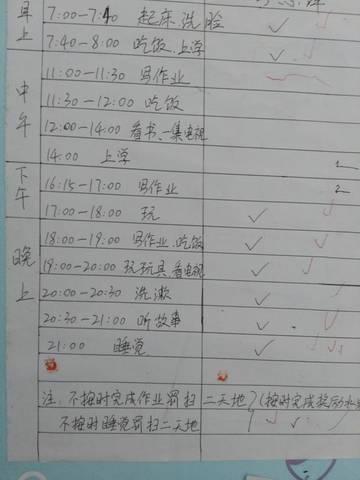 早上
7:00-7:40 起床.洗脸
7:40-8:00 吃饭.上学
中午
11:00-11:30 写作业
11:30-12:00 吃饭
12:00-14:00 看书.一集电视
14:00 上学
下午
16:15-17:00 写作业
17:00-18:00 玩
晚上
18:00-19:00 写作业.吃饭
19:00-20:00 玩玩具.看电视
20:00-20:30 洗漱
20:30-21:00 听故事
21:00 睡觉
注:不按时完成作业罚扫二天地(按时完成奖励
不按时睡觉罚扫二天地